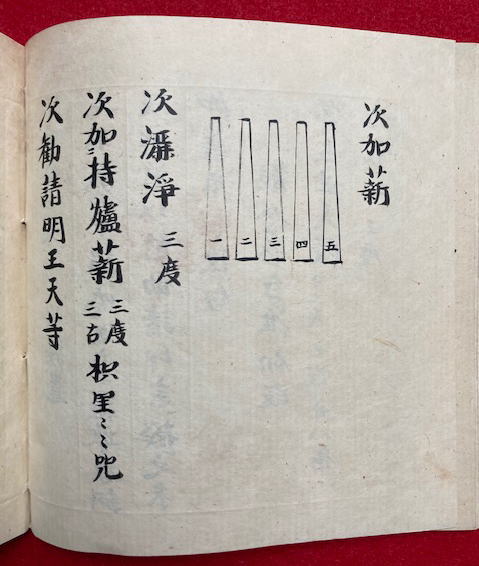 次加薪
五
四
三
二
一
次灑淨 三度
次加〻持爐薪 三度 三古 枳里〻〻咒
次勸請明王天等